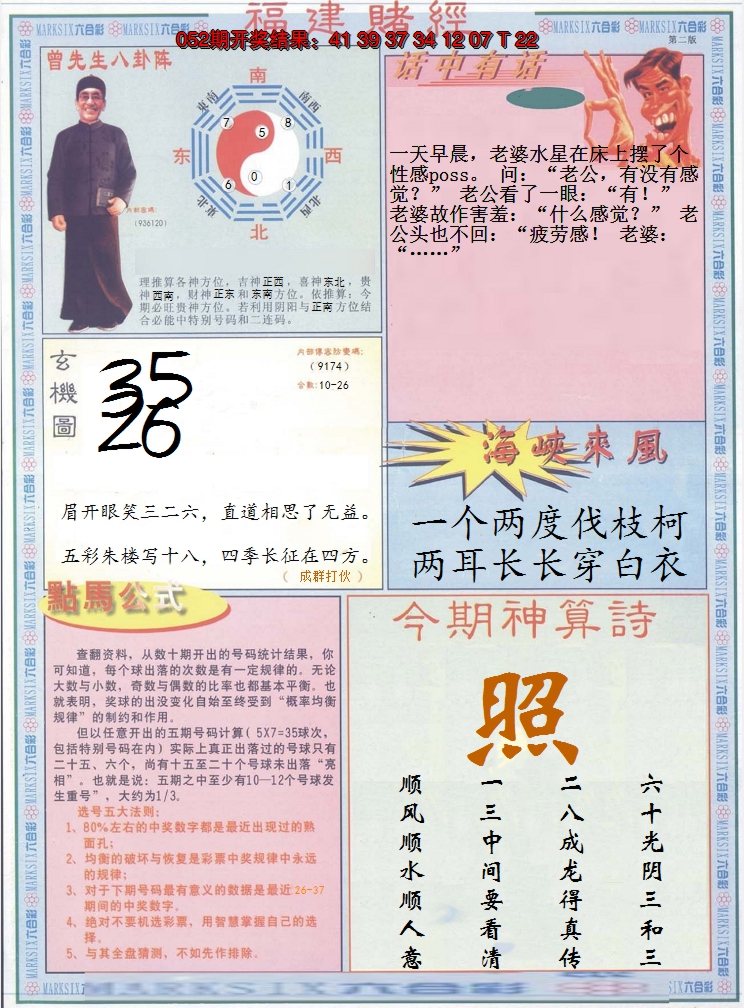 福建賭經
052期开奖结果：41 39 37 34 12 07 T 22
第二版
MARKSIX六合彩
曾先生八卦阵
南
东南
南西
7
5
8
东
西
6
0
1
东北
北西
北
内部密碼:
（936120）
理推算各神方位，吉神正西，喜神东北，贵
神西南，财神正东和东南方位。依推算：今
期必旺贵神方位。若利用阴阳与正南方位结
合必能中特别号码和二连码。
话中有话
一天早晨，老婆水星在床上摆了个
性感poss。 问：“老公，有没有感
觉？” 老公看了一眼：“有！”
老婆故作害羞：“什么感觉？” 老
公头也不回：“疲劳感！ 老婆：
“……”
玄機圖
35
26
（9174）
合数:10-26
眉开眼笑三二六，直道相思了无益。
五彩朱楼写十八，四季长征在四方。
（ 成群打伙 ）
海峽來風
一个两度伐枝柯
两耳长长穿白衣
點馬公式
查翻资料，从数十期开出的号码统计结果，你
可知道，每个球出落的次数是有一定规律的。无论
大数与小数，奇数与偶数的比率也都基本平衡。也
就表明，奖球的出没变化自始至终受到“概率均衡
规律”的制约和作用。
但以任意开出的五期号码计算( 5X7=35球次，
包括特别号码在内) 实际上真正出落过的号球只有
二十五、六个，尚有十五至二十个号球未出落“亮
相”。也就是说：五期之中至少有10—12个号球发
生重号”，大约为1/3。
选号五大法则：
1、80%左右的中奖数字都是最近出现过的熟
面孔；
2、均衡的破坏与恢复是彩票中奖规律中永远
的规律；
3、对于下期号码最有意义的数据是最近26-37
期间的中奖数字。
4、绝对不要机选彩票，用智慧掌握自己的选
择。
5、与其全盘猜测，不如先作排除。
今期神算詩
照
六十光阴三和三
二八成龙得真传
一三中间要看清
顺风顺水顺人意